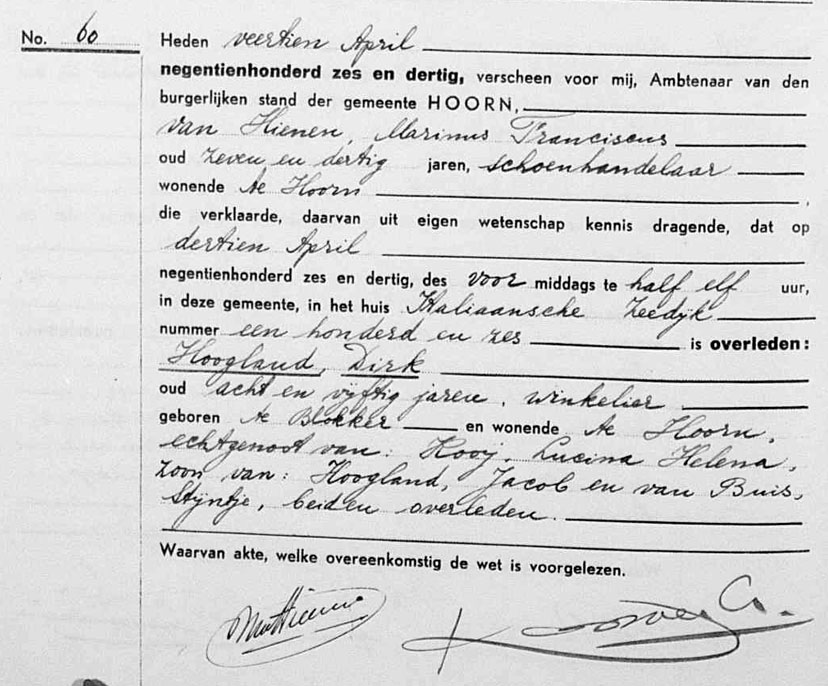 No. 60
Heden veertien April
negentienhonderd zes en dertig, verscheen voor mij, Ambtenaar van den
burgerlijken stand der gemeente HOORN,
van Hienen, Marinus Franciscus
oud zeven en dertig jaren, schoenhandelaar
wonende te Hoorn
die verklaarde, daarvan uit eigen wetenschap kennis dragende, dat op
dertien April
negentienhonderd zes en dertig, des voor middags te half elf uur,
in deze gemeente, in het huis Italiaansche Zeedijk
nummer een honderd en zes is overleden:
Hoogland, Dirk
oud acht en vijftig jaren, winkelier
geboren te Blokker en wonende te Hoorn,
echtgenoot van: Kooij, Lucina Helena,
zoon van: Hoogland, Jacob en van Buis,
Stijntje, beiden overleden.
Waarvan akte, welke overeenkomstig de wet is voorgelezen.